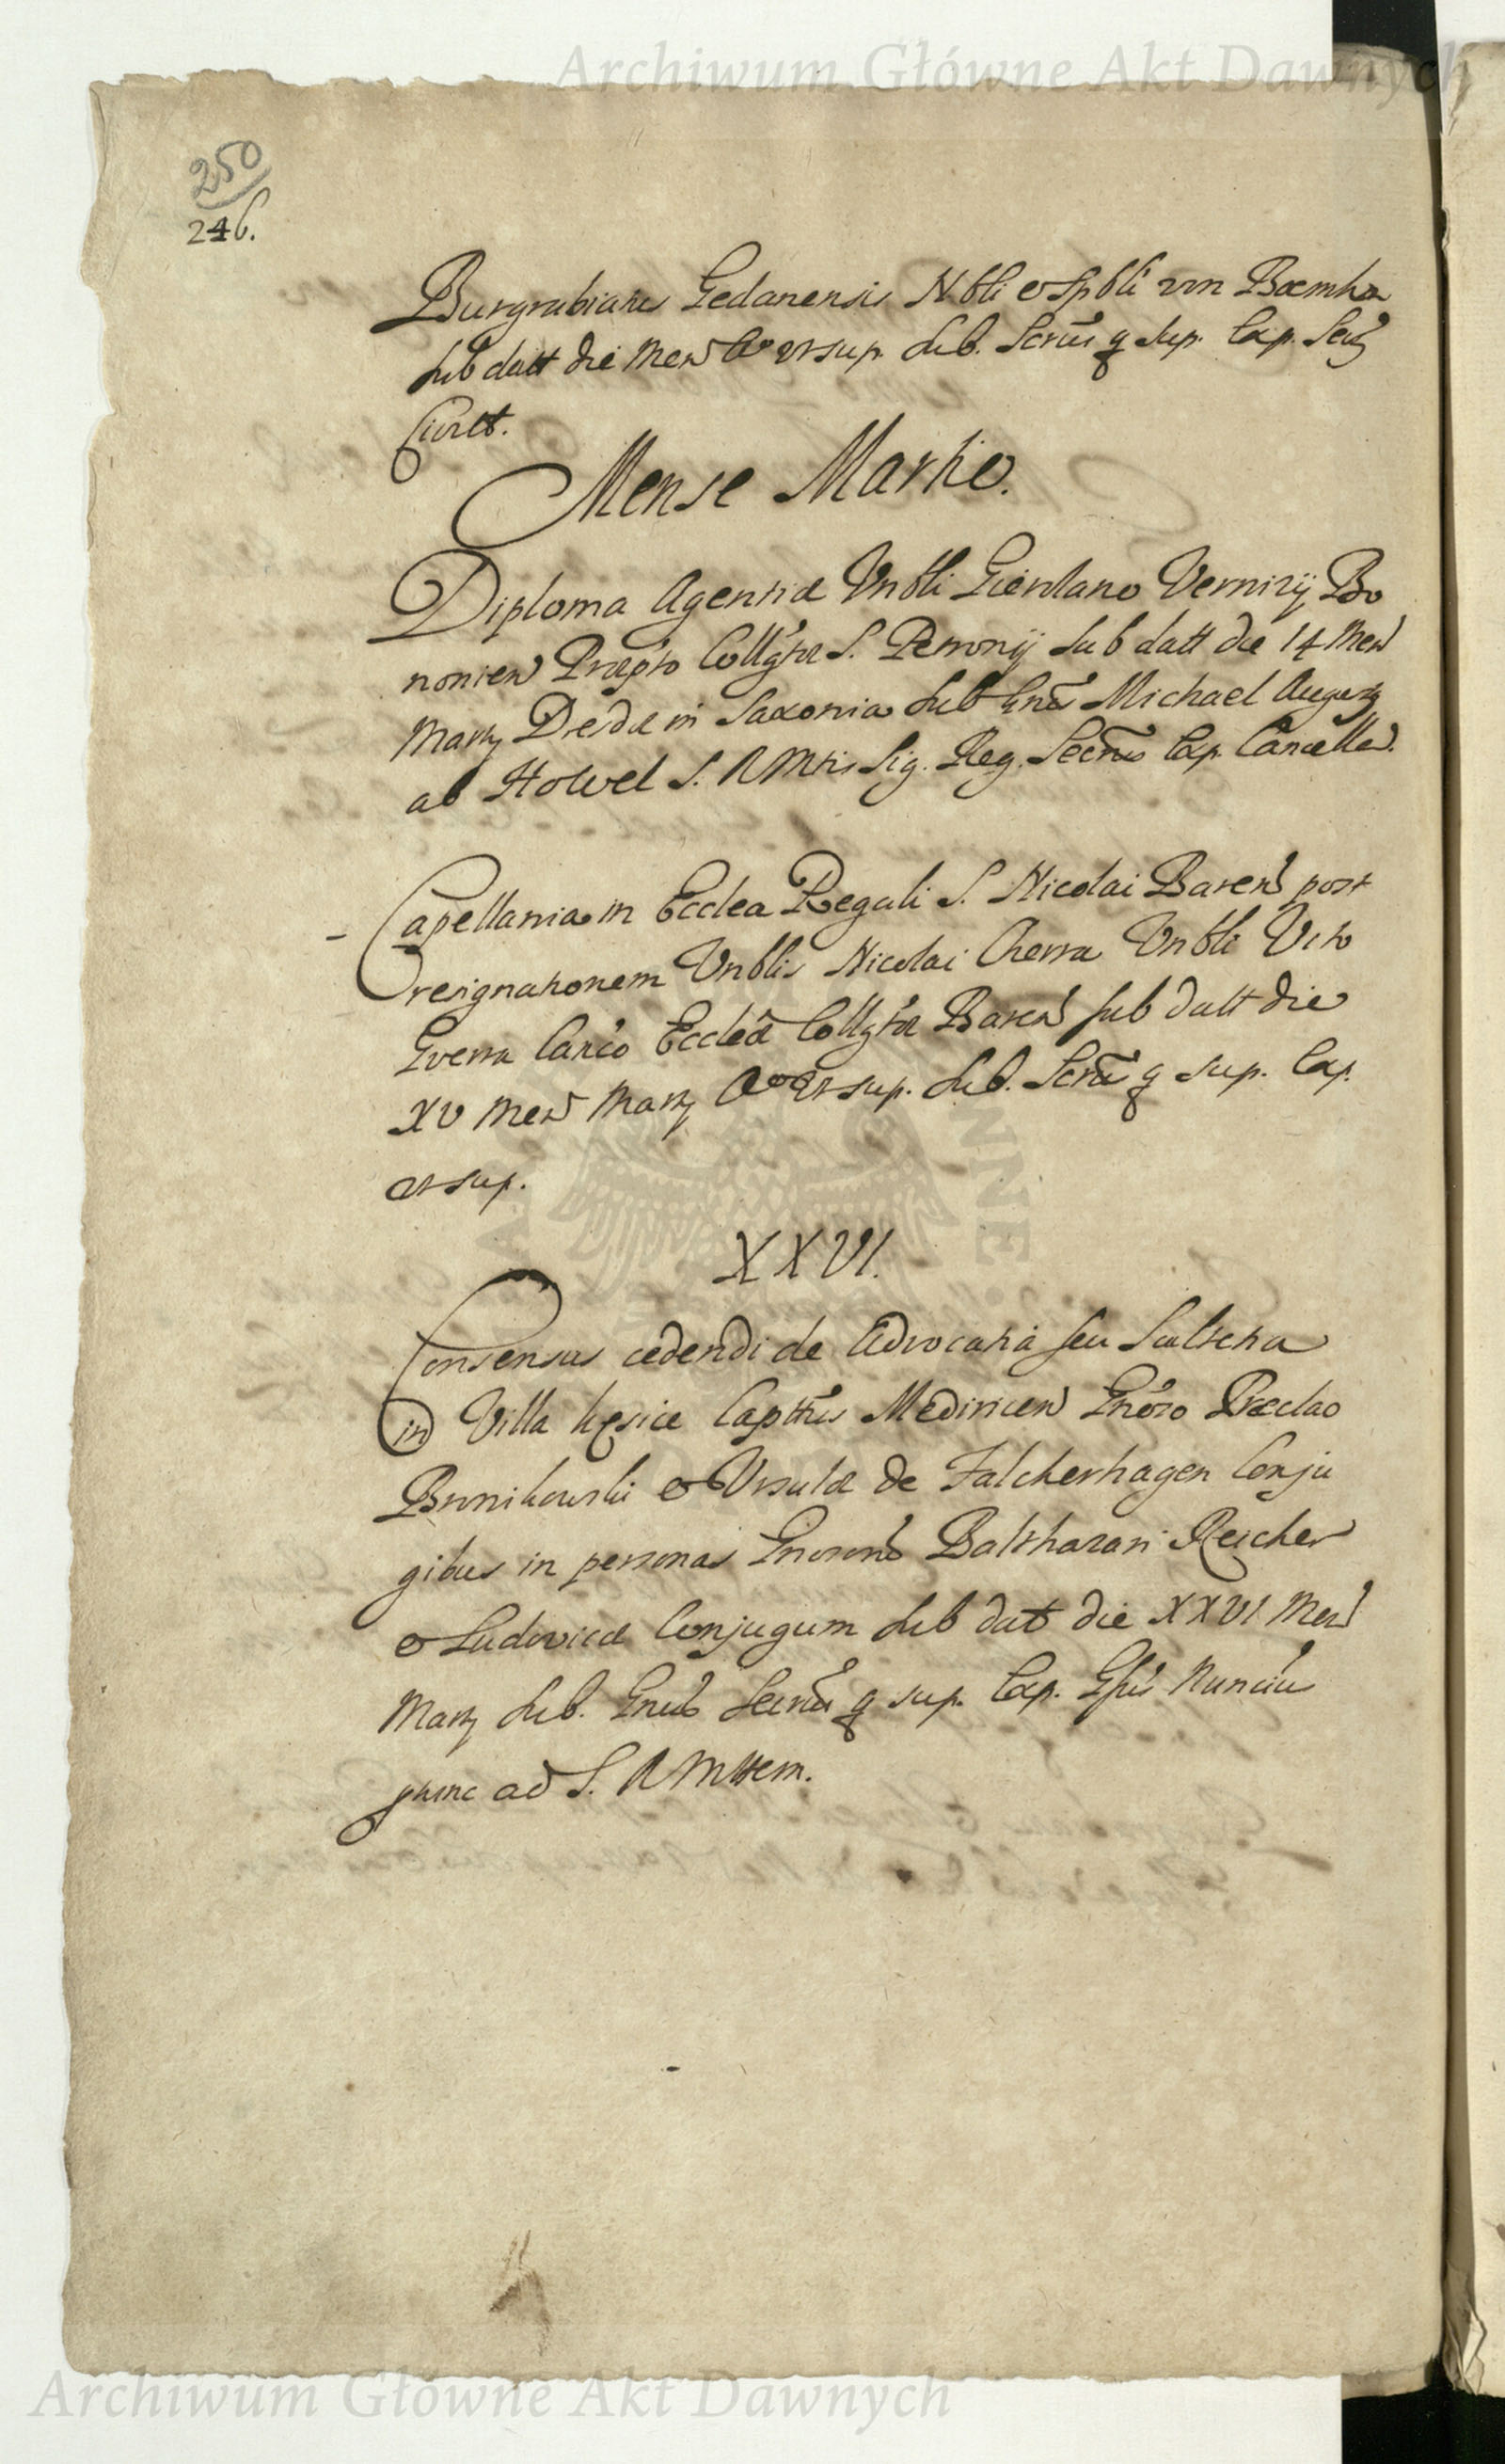 Archiwum Główne Akt Dawnych
250
246.
Burgrabiatus Gedanensis Nbli et Spbli von Boemhn
sub datt die Mens Ao ut sup. sub. Secriũ q sup. Exp. Serz
Civit.
Mense Martio.
Diploma Agentiæ Vnbli Giordano Vernizÿ Bo
nonien Præpto Collgtæ S. Petronÿ sub datt die 14 Mens
Martÿ Dresdæ in Saxonia sub Gnã Michael August
ab Howel S. R Mtis Sig. Reg. Secriũ Exp. Cancella.
Capellania in Ecclea Regali S. Nicolai Barens post
resignationem Vnblis Nicolai Cherra Vnbli Vito
Gverra Canco Ecclæ Collgtæ Barens sub datt die
XV Mens Martÿ Ao ut sup. sub. Secrũ q sup. Exp.
ut sup.
XXVI.
Consensus cedendi de Advocatia seu Scultetia
in Villa Capttus Mediricen Gnoso Præclao
Bronikowski et Vrsulæ de Falckenhagen Conju
gibus in personas Gnosorũ Balthazari Reicher
et Ludovicæ Conjugum sub dat die XXVI Mens
Martÿ sub. Gnũs Secriũ q sup. Exp. Gsũs Nunciũ
ptunc ad S. R Mttem.
NNE
Archiwum Główne Akt Dawnych